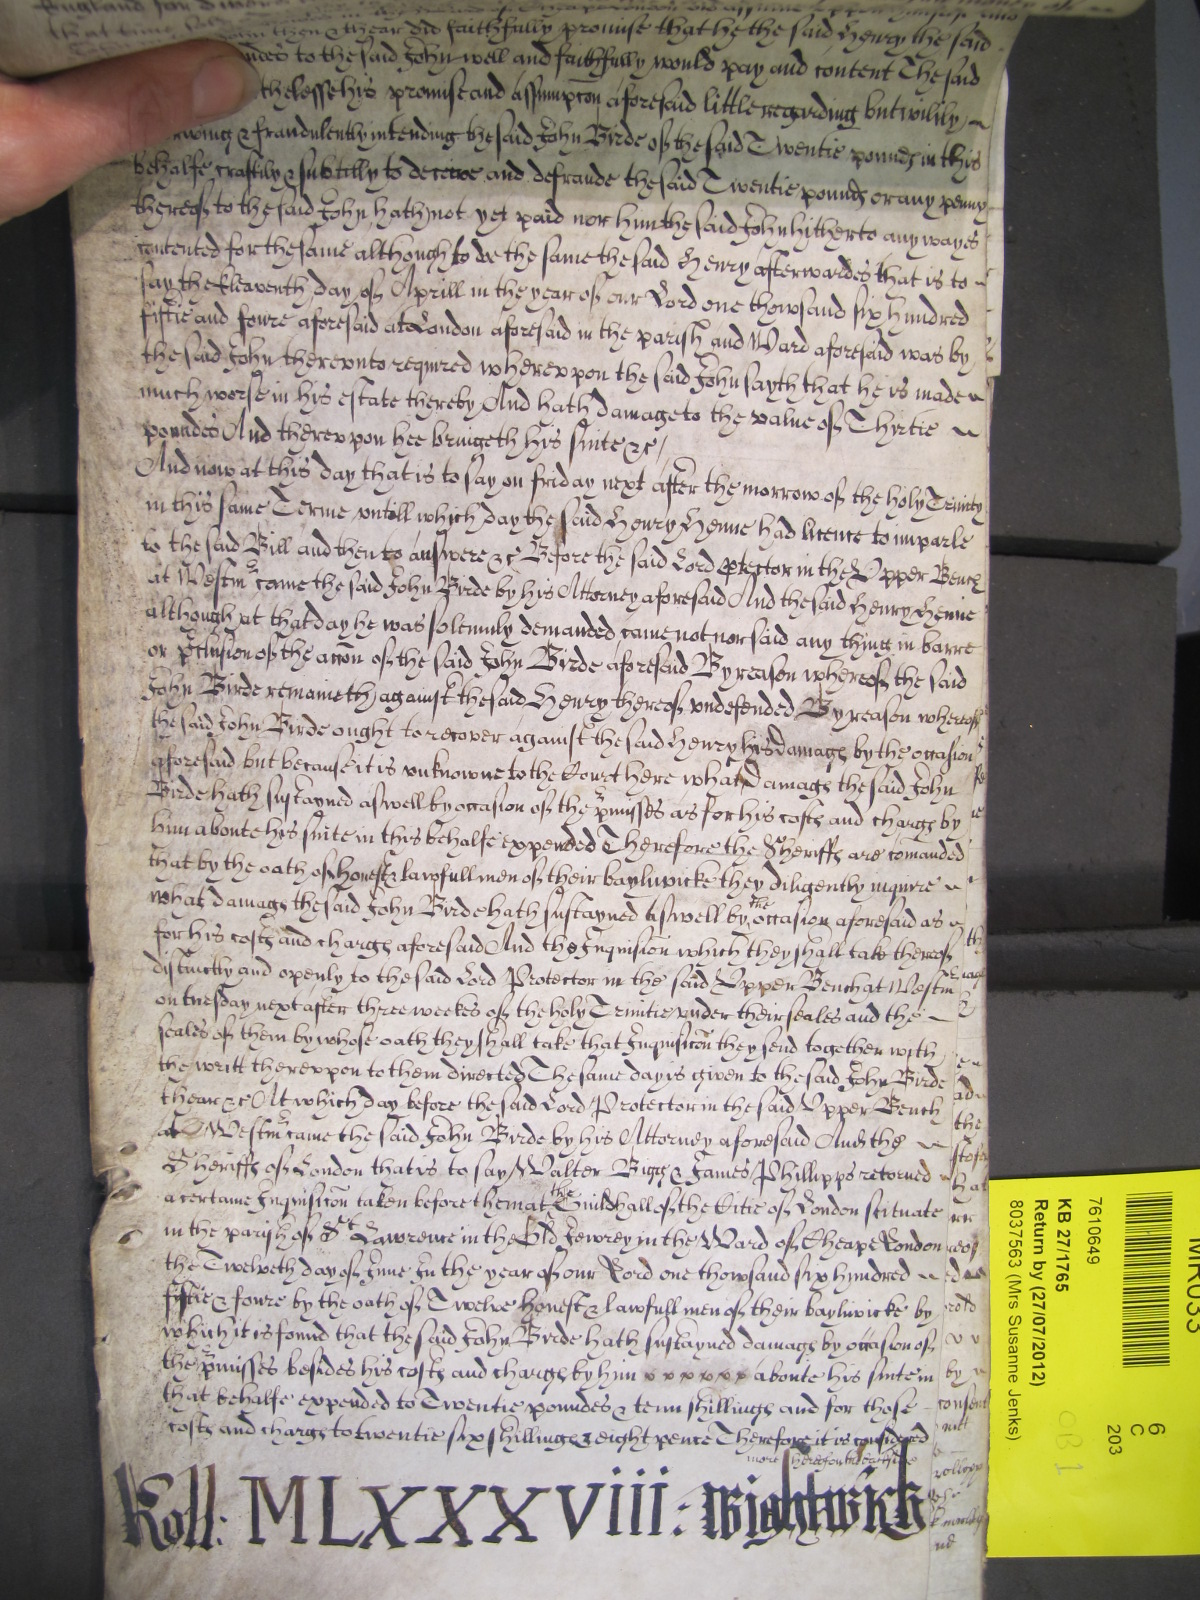 that time
then & thear did faithfully promise that he the said Henry the said
to the said John well and faithfully would pay and content The said
thelesse his promise and assumpcon aforesaid little regarding but wilily
& fraudulently intending the said John Birde of the said Twentie pounds in this
behalfe craftily & subtilly to deceive and defraude the said Twentie pounds or any penny
thereof to the said John hath not yet paid nor him the said John hitherto any wayes
contented for the same although to doe the same the said Henry afterwardes that is to
say the Eleaventh day of Aprill in the year of our Lord one thowsand six hundred
fiftie and foure aforesaid att London aforesaid in the parish and Ward aforesaid was by
the said John therevnto required wherevpon the said John sayth that he is made
much worse in his estate thereby And hath damage to the value of Thyrtie
poundes And therevpon hee bringeth his suite &c
And now at this day that is to say on friday next after the morrow of the holy Trinity
in this same Terme vntill which day the said Henry Henne had licence to imparle
to the said Bill and then to answere &c Before the said Lord ptector in the Vpper Bench
at Westm came the said John Birde by his Attorney aforesaid And the said Henry Henne
although at that day he was solemnly demanded came not nor said any thing in barre
or pclusion of the accon of the said John Birde aforesaid By reason whereof the said
John Birde remaineth against the said Henry thereof vndefended By reason whereof
the said John Birde ought to recover against the said Henry his damags by the occasion
aforesaid but because it is vnknowne to the Court here what Damags the said John
Birde hath sustayned aswell by occasion of the pmisses as for his costs and chargs by
him aboute his suite in this behalfe expended Therefore the Sheriffs are comanded
that by the oath of honest & lawfull men of their bayliwicke they diligently inquire
what damags the said John Birde hath sustayned aswell by the occasion aforesaid as
for his costs and chargs aforesaid And the Inquisicon which they shall take thereof
distinctly and openly to the said Lord Protector in the said Vpper Bench at Westm
on tuesday next after three weekes of the holy Trinitie vnder their seales and the
seales of them by whose oath they shall take that Inquisicon they send together with
the writt therevpon to them directed The same day is given to the said John Birde
thear &c At which day before the said Lord Protector in the said Vpper Bench
at Westm came the said John Birde by his Attorney aforesaid And the
Sheriffs of London that is to say Walter Bigg & James Phillipps retorned
a certaine Inquisicon taken before them at the Guildhall of the Citie of London scituate
in the parish of St Lawrence in the Old Jewrey in the Ward of Cheape London
the Twelveth day of June In the year of our Lord one thowsand six hundred
fiftie & foure by the oath of Twelve honest & lawfull men of their bayliwicke by
which it is found that the said John Birde hath sustayned damags by occasion of
the pmisses besides his costs and chargs by him x x x x x x aboute his suite in
that behalfe expended to Twentie poundes & tenn shillings and for those
costs and chargs to twentie six shillings & eight pence Therefore it is considered
more hereof on the other side
Roll: MLXXXVIII: Wightwick
7610649
KB 27/1765
Return by (27/07/2012)
8037563 (Mrs Susanne Jenks)
6
C
203
MR033